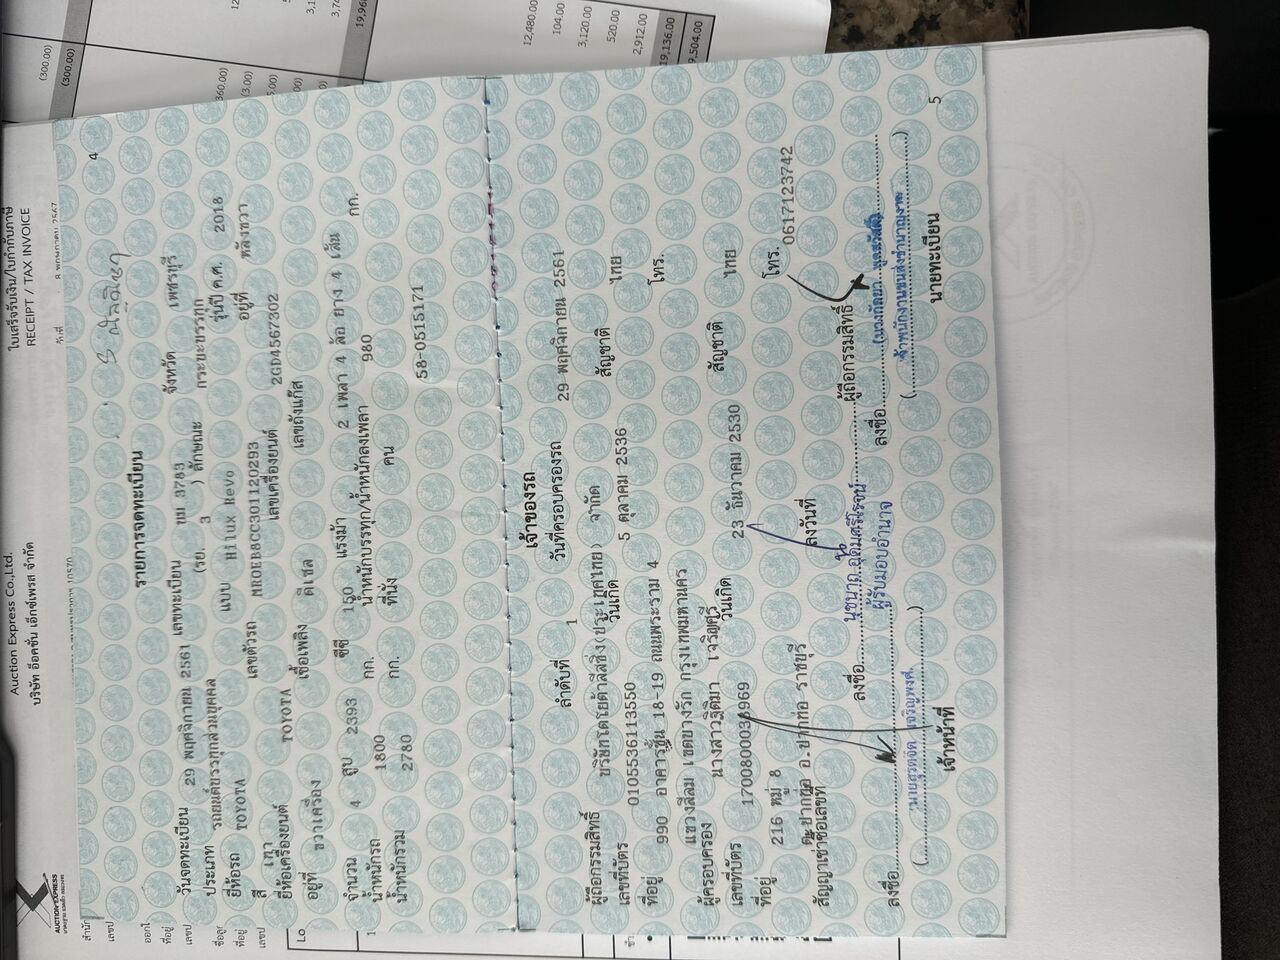 4
รายการจดทะเบียน
วันจดทะเบียน 29 พฤศจิกายน 2561 เลขทะเบียน ขม 3783 จังหวัด เพชรบุรี
ประเภท รถยนต์บรรทุกส่วนบุคคล (รย. 3 ) ลักษณะ กระบะบรรทุก
ยี่ห้อรถ TOYOTA แบบ Hilux Revo รุ่นปี ค.ศ. 2018
สี เทา เลขตัวรถ MR0EB8CC301120293 อยู่ที่ หลังขวา
ยี่ห้อเครื่องยนต์ TOYOTA เลขเครื่องยนต์ 2GD4567302
อยู่ที่ ขวาเครื่อง เชื้อเพลิง ดีเซล เลขถังแก๊ส
จำนวน 4 สูบ 2393 ซีซี 150 แรงม้า 2 เพลา 4 ล้อ ยาง 4 เส้น
น้ำหนักรถ 1800 กก. น้ำหนักบรรทุก/น้ำหนักลงเพลา 980 กก.
น้ำหนักรวม 2780 กก. ที่นั่ง คน
58-0515171
เจ้าของรถ
ลำดับที่ 1 วันที่ครอบครองรถ 29 พฤศจิกายน 2561
ผู้ถือกรรมสิทธิ์ บริษัทโตโยต้าลีสซิ่ง(ประเทศไทย) จำกัด
เลขที่บัตร 0105536113550 วันเกิด 5 ตุลาคม 2536 สัญชาติ ไทย
ที่อยู่ 990 อาคารชั้น 18-19 ถนนพระราม 4 โทร.
แขวงสีลม เขตบางรัก กรุงเทพมหานคร
ผู้ครอบครอง นางสาวฐิติมา เจริญศรี
เลขที่บัตร วันเกิด 23 ธันวาคม 2530 สัญชาติ ไทย
ที่อยู่ 216 หมู่ 8 โทร. 0617123742
ต.ปากท่อ อ.ปากท่อ ราชบุรี
สัญญาเช่าซื้อเลขที่ ลงวันที่ ผู้ถือกรรมสิทธิ์
ลงชื่อ
ผู้รับมอบอำนาจ
ลงชื่อ ลงชื่อ
เจ้าพนักงานขนส่งชำนาญงาน
เจ้าหน้าที่ นายทะเบียน
5
Auction Express Co.,Ltd.
บริษัท อ๊อคชั่น เอ็กซ์เพรส จำกัด
ใบเสร็จรับเงิน/ใบกำกับภาษี
RECEIPT / TAX INVOICE
AUCTION EXPRESS
(300.00)
(300.00)
12,480.00
104.00
3,120.00
520.00
2,912.00
19,136.00